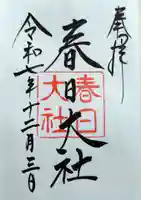 奉拝
春日大社
春日大社
令和七年十二月三日